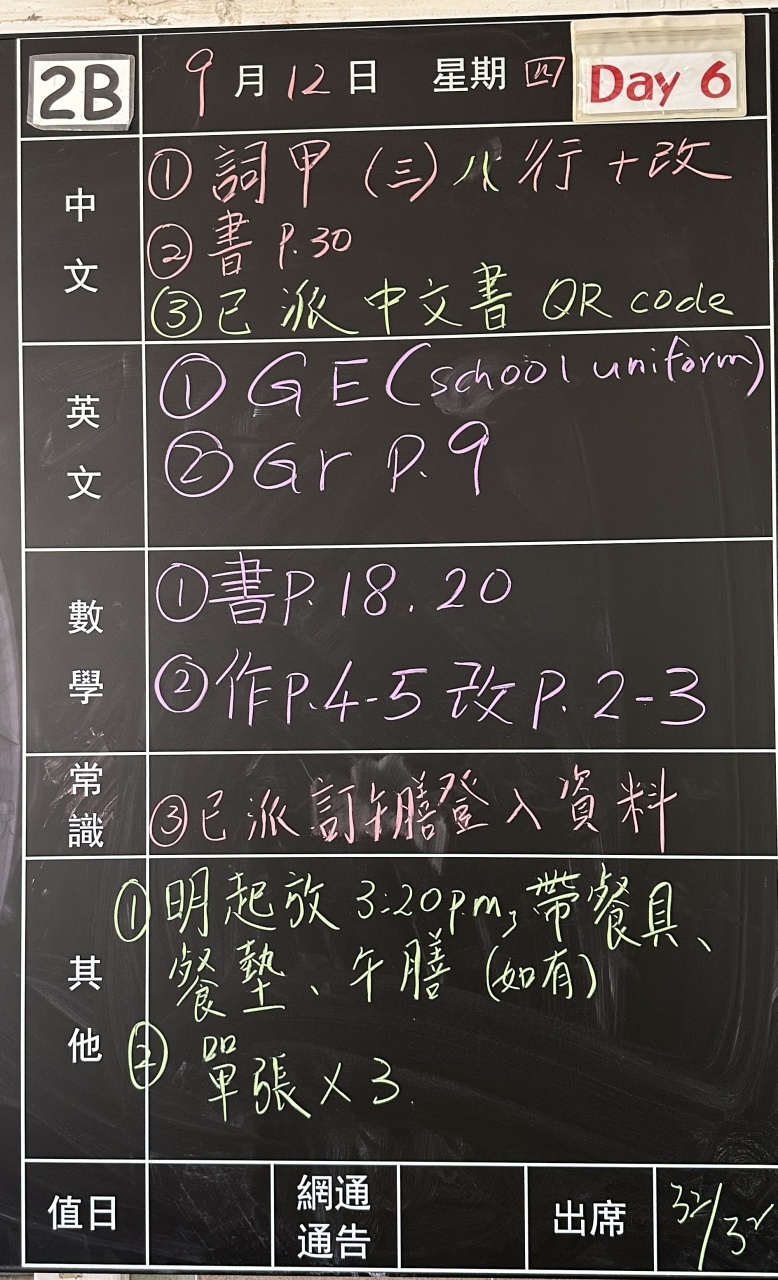 2B 9月12日 星期四 Day 6
中文
①詞甲(三)八行+改
②書P.30
③已派中文書QR code
英文
①GE(school uniform)
②Gr P.9
數學
①書P.18.20
②作P.4-5 改P.2-3
常識
③已派訂午膳登入資料
其他
①明起放3:20pm,帶餐具、
餐墊、午膳(如有)
②單張×3.
值日 網通通告 出席 32/32